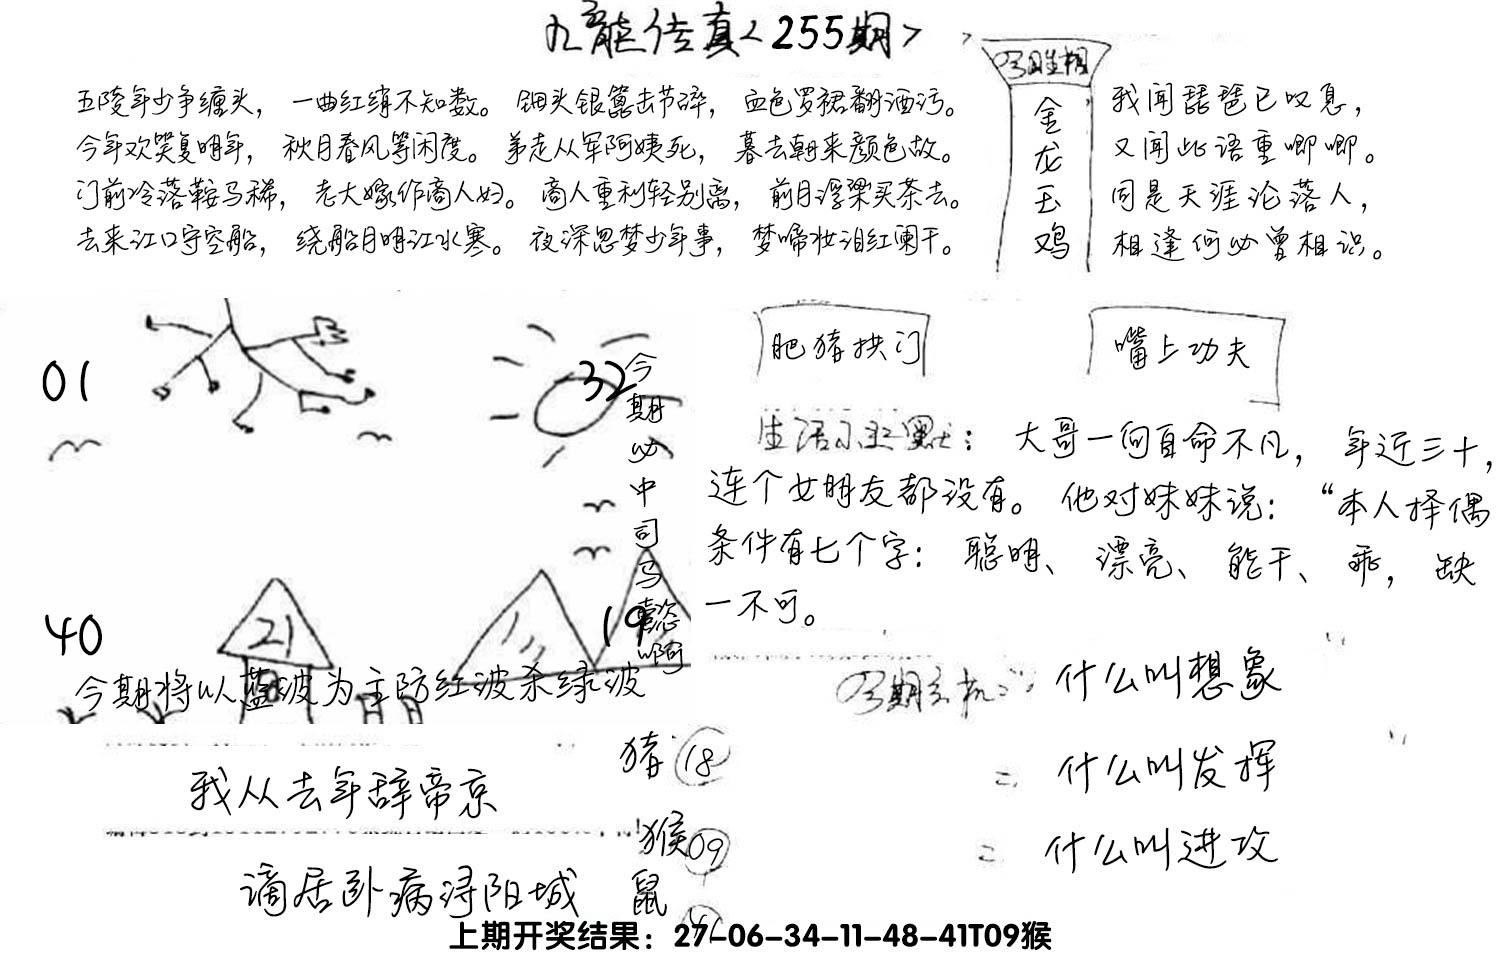 九龍传真<255期>
五陵年少争缠头，一曲红绡不知数。钿头银篦击节碎，血色罗裙翻酒污。
今年欢笑复明年，秋月春风等闲度。弟走从军阿姨死，暮去朝来颜色故。
门前冷落鞍马稀，老大嫁作商人妇。商人重利轻别离，前月浮梁买茶去。
去来江口守空船，绕船月明江水寒。夜深忽梦少年事，梦啼妆泪红阑干。
金龙玉鸡
我闻琵琶已叹息，
又闻此语重唧唧。
同是天涯沦落人，
相逢何必曾相识。
01
32
今期必中司马懿啊
40
21
19
今期将以蓝波为主防红波杀绿波
肥猪拱门
嘴上功夫
生活小幽默：大哥一向自命不凡，年近三十，
连个女朋友都没有。他对妹妹说：“本人择偶
条件有七个字：聪明、漂亮、能干、乖，缺
一不可。
今期玄机：什么叫想象
= 什么叫发挥
= 什么叫进攻
我从去年辞帝京
谪居卧病浔阳城
猪 18
猴 09
鼠
上期开奖结果：27-06-34-11-48-41T09猴